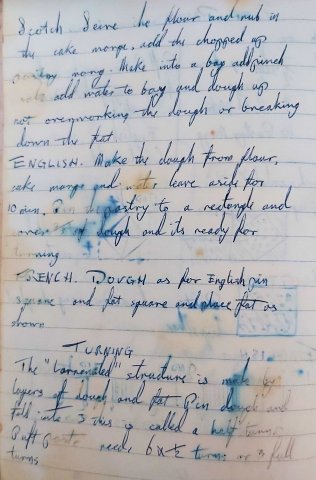 Scotch Seive the flour and rub in
the cake marge, add the chopped up
pastry marg. Make into a bay add
add water to bay and dough up
not overworking the dough or breaking
down the fat.
ENGLISH. Make the dough from flour,
cake marge and water leave aside for
10 min. Pin the pastry to a rectangle and
of dough and its ready for
turning
FRENCH. DOUGH as for English pin
square and fat square and place fat as
shown
TURNING
The "Lamenated" structure is made by
layers of dough and fat Pin dough and
fold into 3 this is called a half turn
Puff Paste needs 6 x ½ turns or 3 full
turns